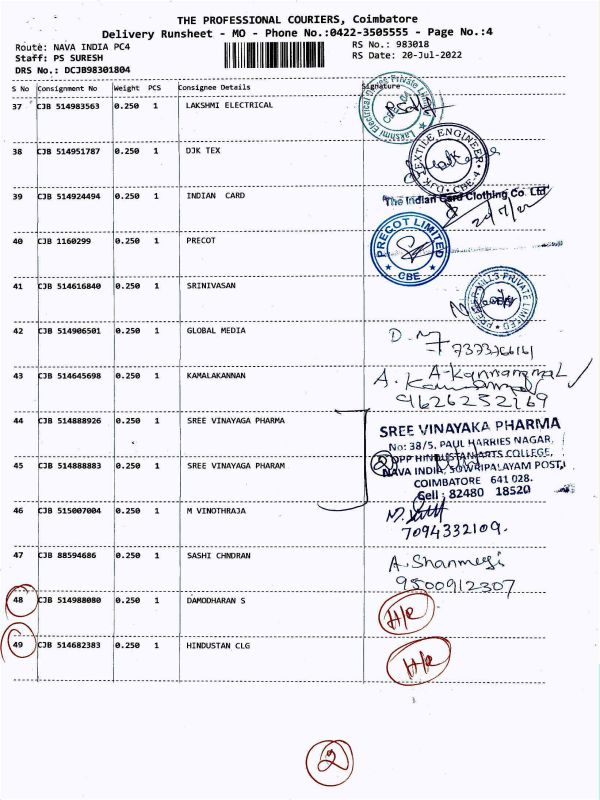 THE PROFESSIONAL COURIERS, Coimbatore
Delivery Runsheet - MO - Phone No.:0422-3505555 - Page No.:4
Route: NAVA INDIA PC4
RS No.: 983018
Staff: PS SURESH
RS Date: 20-Jul-2022
DRS No.: DCJB98301804
S No Consignment No Weight PCS Consignee Details Signature
37 CJB 514983563 0.250 1 LAKSHMI ELECTRICAL
38 CJB 514951787 0.250 1 DJK TEX
TEXTILE ENGINEER
CBE-4
39 CJB 514924494 0.250 1 INDIAN CARD
The Indian Card Clothing Co. Ltd
20/7/22
40 CJB 1160299 0.250 1 PRECOT
PRECOT LIMITED
CBE
41 CJB 514616840 0.250 1 SRINIVASAN
MILLS PRIVATE LIMITED
42 CJB 514906501 0.250 1 GLOBAL MEDIA
D.
7373766161
43 CJB 514645698 0.250 1 KAMALAKANNAN
A-Kannammal
9626252169
44 CJB 514888926 0.250 1 SREE VINAYAGA PHARMA
45 CJB 514888883 0.250 1 SREE VINAYAGA PHARAM
SREE VINAYAKA PHARMA
No: 38/5, PAUL HARRIES NAGAR,
OPP HINDUSTAN ARTS COLLEGE,
NAVA INDIA, SOWRIPALAYAM POST,
COIMBATORE 641 028.
Cell : 82480 18520
2
46 CJB 515007004 0.250 1 M VINOTHRAJA
7094332109.
47 CJB 88594686 0.250 1 SASHI CHNDRAN
A. Shanmugi
9500912307
48 CJB 514988080 0.250 1 DAMODHARAN S
H/R
49 CJB 514682383 0.250 1 HINDUSTAN CLG
H/R
2